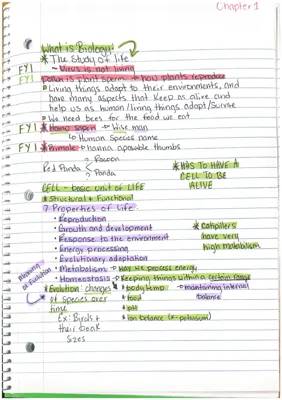 Chapter 1
What is Biology?
* The Study of life
FYI - Virus is not living
FYI Pollen is plant sperm → how plants reproduce
Living things adapt to their environments, and
have many aspects that keep us alive and
help us as human/living things adapt/survive
We need bees for the food we eat
FYI * Homo sapien → Wise man
↳ Human Species name
FYI * Primate → hanna apowable thumbs
Red Panda < Racoon
? Panda
* HAS TO HAVE A
CELL TO BE
ALIVE
CELL - basic unit of LIFE
* Structural + Functional
7 Properties of Life
• Reproduction
• Growth and development
• Response to the environment
• Energy processing
• Evolutionary adaptation
• Metabolism → How we process energy
• Homeostasis → Keeping things within a certain range
* Catipillers
have very
high matablism
Meaning
of Evolution
* Evolution: changes
of species over
time
Ex: Birds +
their beak
sizes
* body temp → maintaining internal
balance
* food
* pH
* ion balance (ex-potassium)